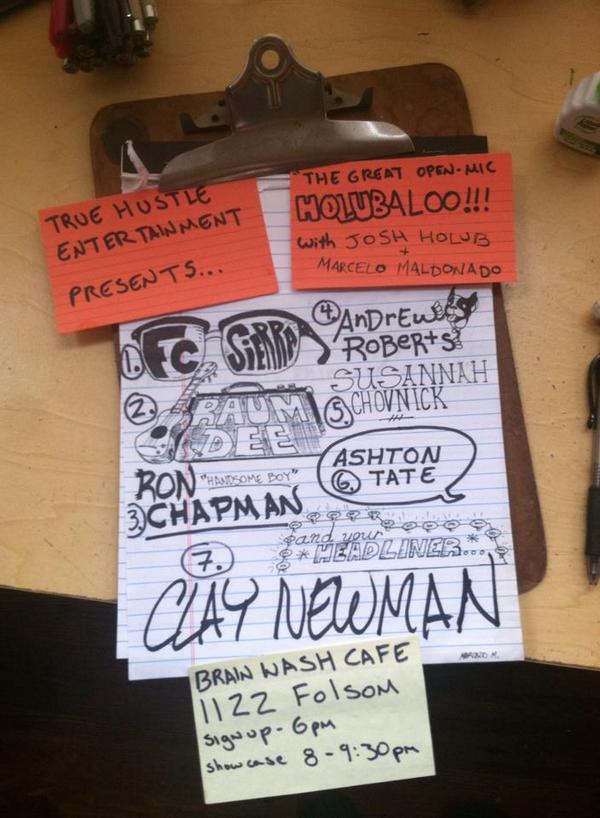 TRUE HUSTLE
ENTERTAINMENT
PRESENTS...
"THE GREAT OPEN-MIC
HOLUBALOO!!!
with JOSH HOLUB
+
MARCELO MALDONADO
1. FC SIERRA
2. RAUM
DEE
RON "HANDSOME BOY"
3. CHAPMAN
4. ANDREW
ROBERTS
SUSANNAH
5. CHOVNICK
ASHTON
6. TATE
and your
* HEADLINER... *
7.
CLAY NEWMAN
MARCELO M.
BRAIN WASH CAFE
1122 Folsom
signup - 6pm
showcase 8-9:30pm